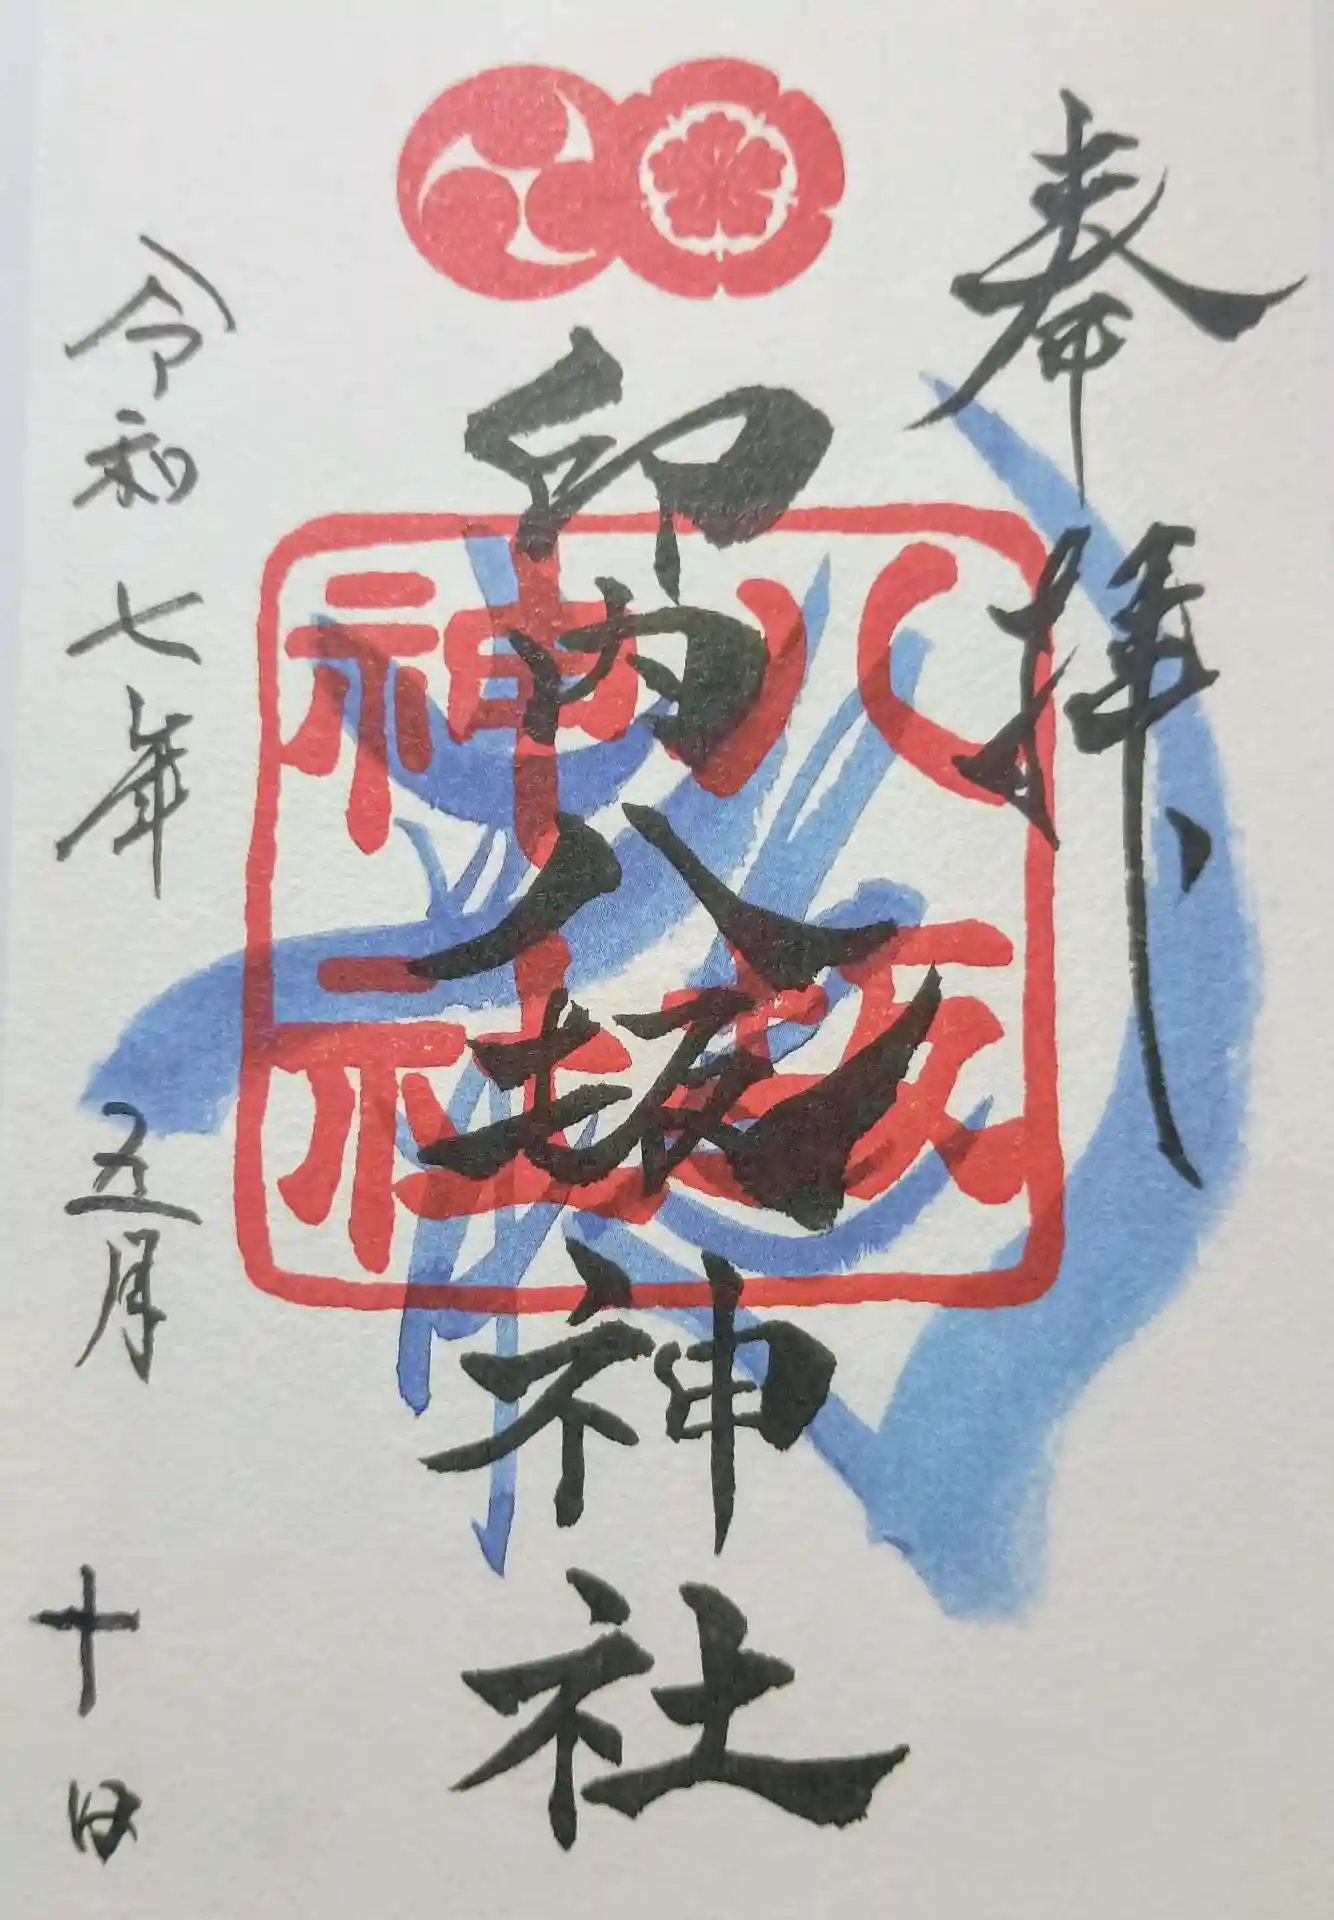 奉拝
印内八坂神社
八坂
神社
令和七年五月十日